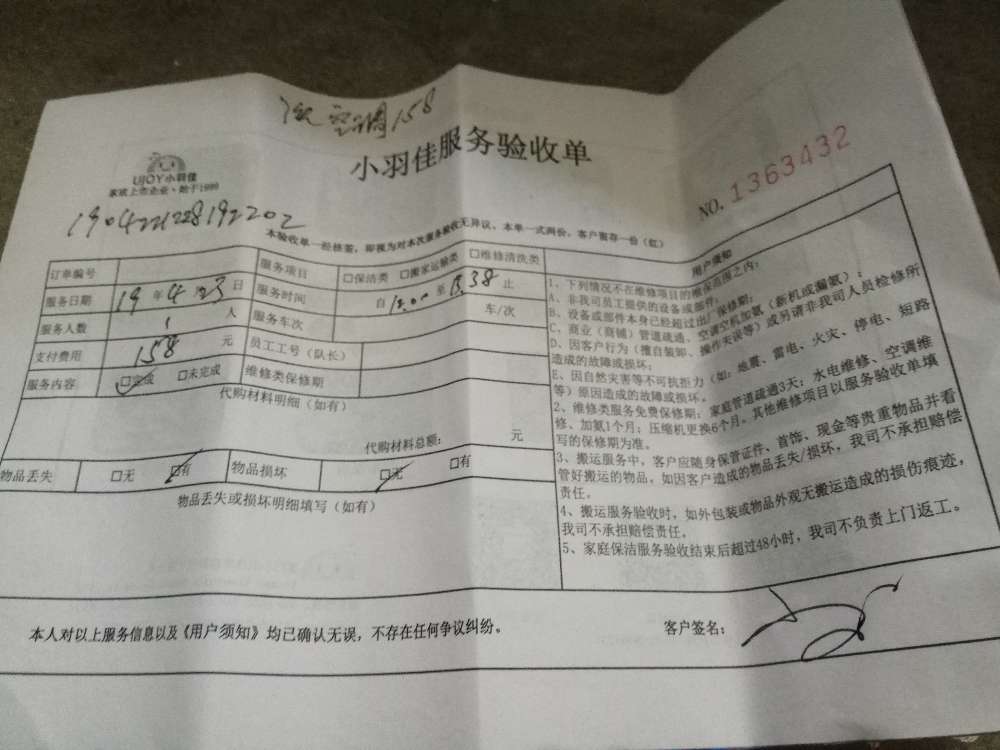 空调158
小羽佳服务验收单
UJOY小羽佳
家政上市企业·始于1999
NO. 1363432
1904221228192202
本验收单一经移签,即视为对本次服务验收无异议,本单一式两份,客户留存一份(红)
订单编号 服务项目 □保洁类 □搬家运输类 □维修清洗类
服务日期 19 年 4 月 23 日 服务时间 自 至 止
服务人数 1 人 服务车次 车/次
支付费用 158 元 员工工号(队长)
服务内容 □完成 □未完成 维修类保修期
代购材料明细(如有)
代购材料总额: 元
物品丢失 □无 □有 物品损坏 □无 □有
物品丢失或损坏明细填写(如有)
用户须知
1、下列情况不在维修项目的维保范围之内:
A、非我司员工提供的设备或部件;
B、设备或部件本身已经超过出厂保修期;
C、商业(商铺)管道疏通、空调空机加氨(新机或漏氨);
D、因客户行为(擅自装卸、操作失误等)或另请非我司人员检修所
造成的故障或损坏;
E、因自然灾害等不可抗拒力(如:地震、雷电、火灾、停电、短路
等)原因造成的故障或损坏。
2、维修类服务免费保修期:家庭管道疏通3天;水电维修、空调维
修、加氨1个月;压缩机更换6个月。其他维修项目以服务验收单填
写的保修期为准。
3、搬运服务中,客户应随身保管证件、首饰、现金等贵重物品并看
管好搬运的物品,如因客户造成的物品丢失/损坏,我司不承担赔偿
责任。
4、搬运服务验收时,如外包装或物品外观无搬运造成的损伤痕迹,
我司不承担赔偿责任。
5、家庭保洁服务验收结束后超过48小时,我司不负责上门返工。
本人对以上服务信息以及《用户须知》均已确认无误,不存在任何争议纠纷。
客户签名: